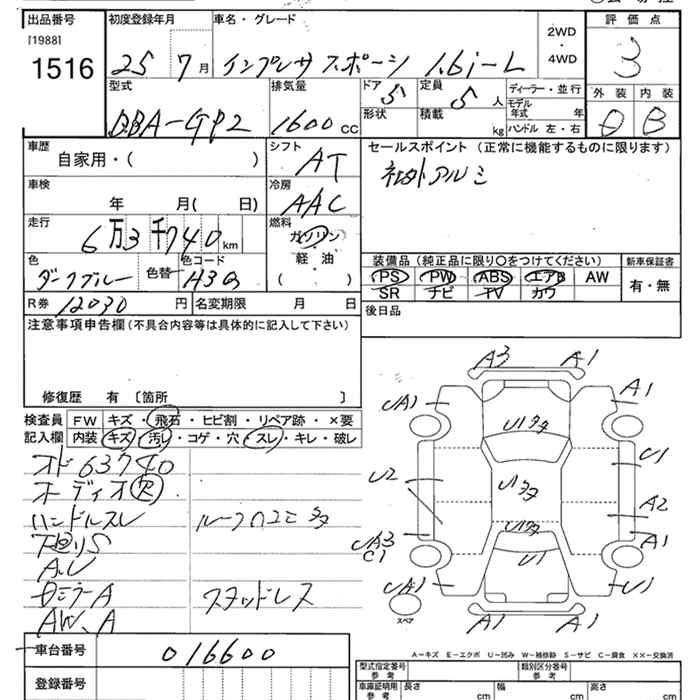 出品番号 初度登録年月 車名・グレード 評価点
[1988]
1516
25 7月 インプレッサ スポーツ 1.6i-L
2WD
・
4WD
3
型式 排気量 ドア 5 定員 5 人 ディーラー・並行 外装 内装
DBA-GP2 1600 cc 形状 積載 kg モデル年式 年 B
ハンドル 左・右
車歴 シフト セールスポイント (正常に機能するものに限ります)
自家用・( ) AT 社外アルミ
車検 冷房
年 月( 日) AAC
走行 燃料
6万3千740km ガソリン
色 色替 色コード 軽油
ダークブルー H3Q ( )
装備品 (純正品に限り〇をつけてください) 新車保証書
PS PW ABS エアB AW 有・無
SR ナビ TV カワ
R券 12030 円 名変期限 月 日 後日品
注意事項申告欄 (不具合内容等は具体的に記入して下さい)
修復歴 有 〔箇所 〕
検査員 FW キズ・飛石・ヒビ割・リペア跡・×要
記入欄 内装 キズ・汚レ・コゲ・穴・スレ・キレ・破レ
オド63740
オーディオ欠
ハンドルスレ ルーフロコミ多
A.U
DミラーA スタッドレス
AW、A
A3 A1
UA1 A1
U1多
U2 U1多 U1
A2
UA3 U1多 A1
C1 U1
UA1 U1
スペア A1 A1
A-キズ E-エクボ U-凹み W-補修跡 S-サビ C-腐食 XX-交換済
車台番号 016600
登録番号
型式指定番号 参考 類別区分番号 参考
車庫証明用 参考 長さ cm 幅 cm 高さ cm